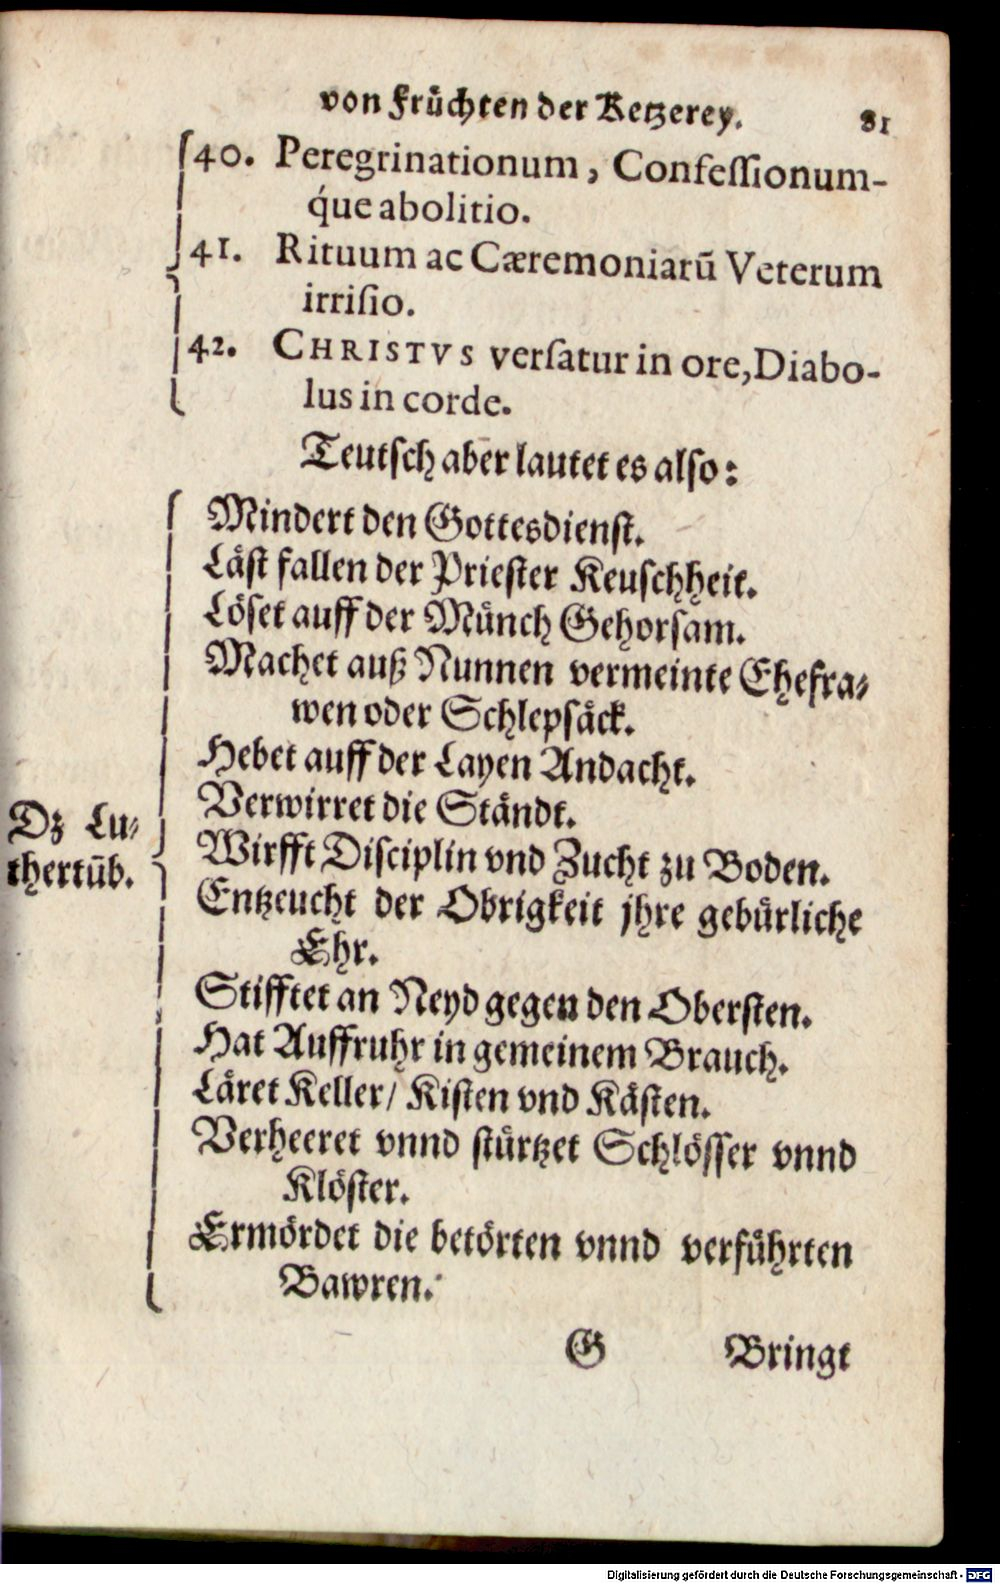 von Früchten der Ketzerey. 81
40. Peregrinationum, Confessionum-
q́ue abolitio.
41. Rituum ac Cæremoniarũ Veterum
irrisio.
42. CHRISTVS versatur in ore, Diabo-
lus in corde.
Teutsch aber lautet es also:
Mindert den Gottesdienst.
Läst fallen der Priester Keuschheit.
Löset auff der Münch Gehorsam.
Machet auß Nunnen vermeinte Ehefra-
wen oder Schlepsäck.
Hebet auff der Layen Andacht.
Verwirret die Ständt.
Dz Lu-
thertũb.
Wirfft Disciplin vnd Zucht zu Boden.
Entzeucht der Obrigkeit jhre gebürliche
Ehr.
Stifftet an Neyd gegen den Obersten.
Hat Auffruhr in gemeinem Brauch.
Läret Keller/ Kisten vnd Kästen.
Verheeret vnnd stürtzet Schlösser vnnd
Klöster.
Ermördet die betörten vnnd verführten
Bawren.
G Bringt
Digitalisierung gefördert durch die Deutsche Forschungsgemeinschaft - DFG